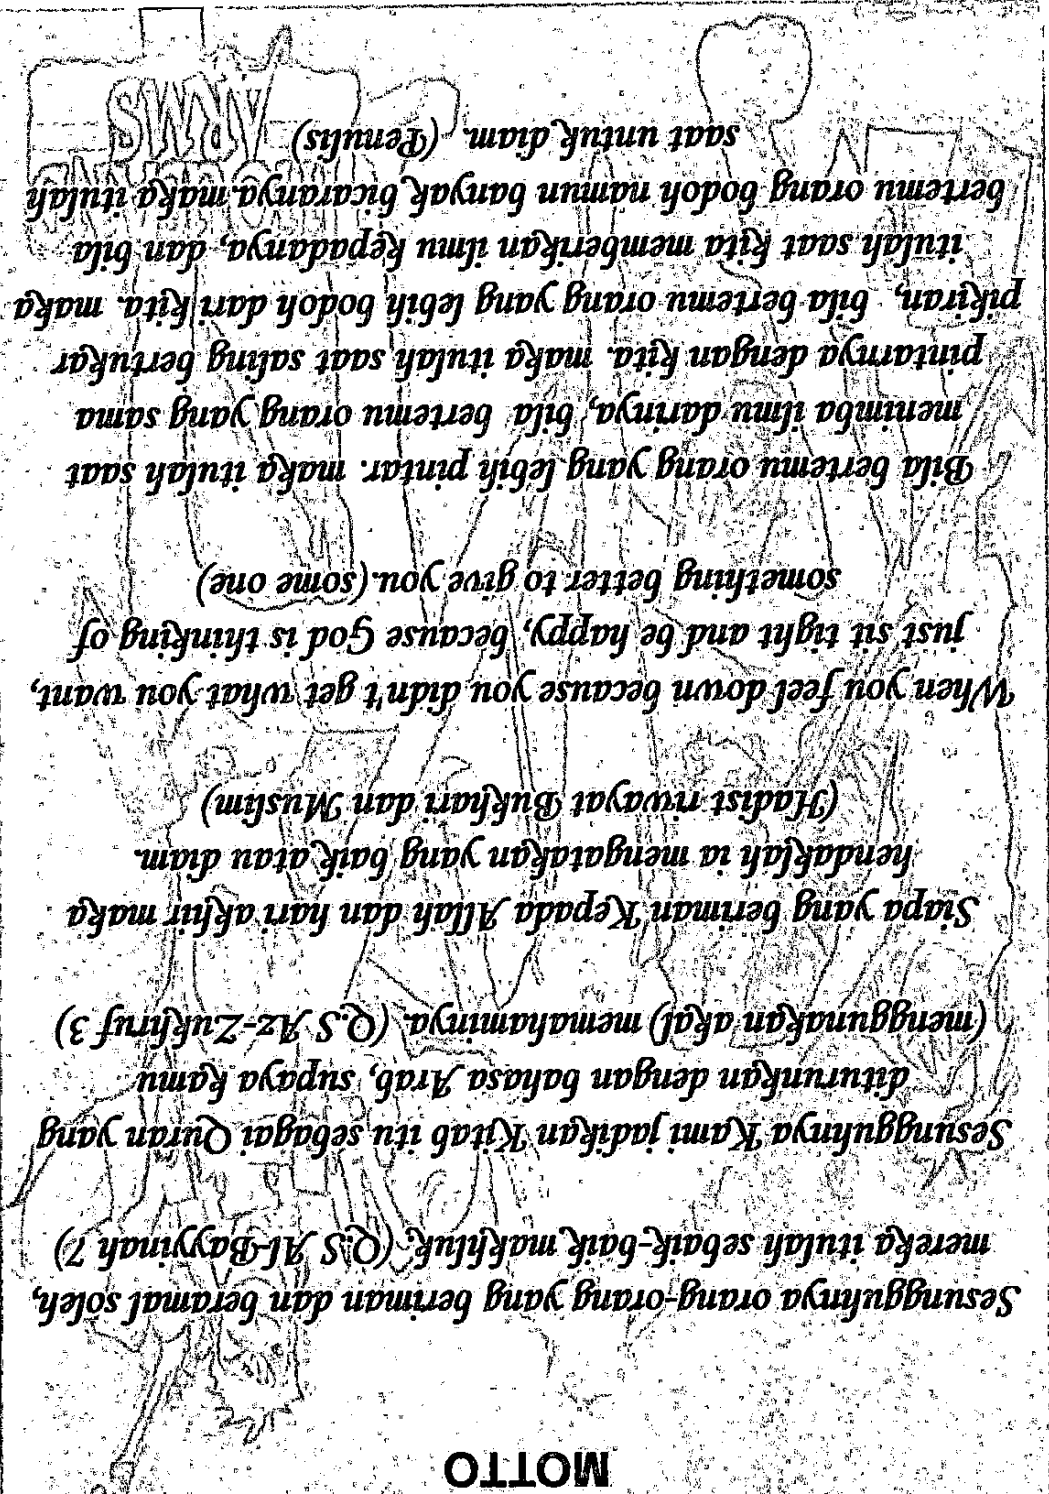 MOTTO
Sesungguhnya orang-orang yang beriman dan beramal soleh,
mereka itulah sebaik-baik makhluk, (Q.S Al-Bayyinah 7)
Sesungguhnya Kami jadikan Kitab itu sebagai Quran yang
diturunkan dengan bahasa Arab, supaya kamu
(menggunakan akal) memahaminya. (Q.S Az-Zukhruf 3)
Siapa yang beriman Kepada Allah dan hari akhir maka
hendaklah ia mengatakan yang baik atau diam.
(Hadist riwayat Bukhari dan Muslim)
When you feel down because you didn't get what you want,
just sit tight and be happy, because God is thinking of
something better to give you. (some one)
Bila bertemu orang yang lebih pintar. maka itulah saat
menimba ilmu darinya, bila bertemu orang yang sama
pintarnya dengan kita. maka itulah saat saling bertukar
pikiran, bila bertemu orang yang lebih bodoh dari kita. maka
itulah saat kita memberikan ilmu kepadanya, dan bila
bertemu orang bodoh namun banyak bicaranya. maka itulah
saat untuk diam. (Penulis)
ARMS